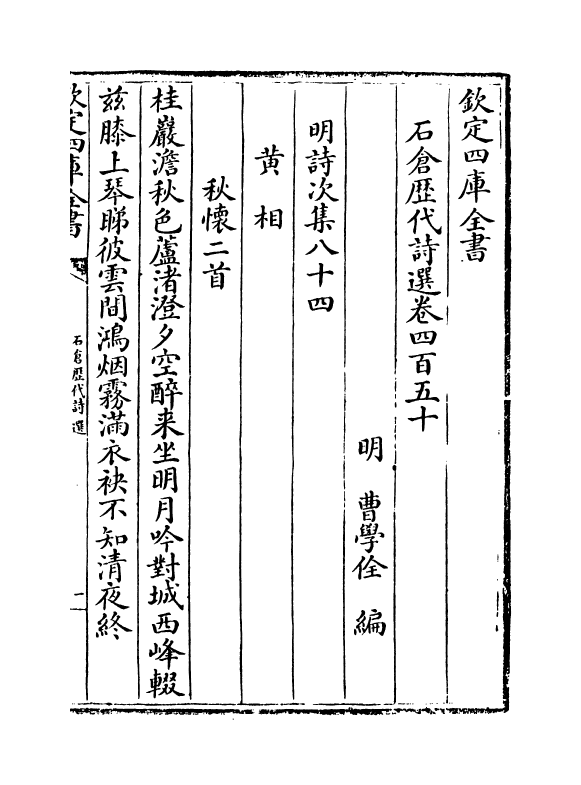 欽定四庫全書
石倉歴代詩選卷四百五十
明　曹學佺　編
明詩次集八十四
黄相
秋懷二首
桂巖澹秋色蘆渚澄夕空醉来坐明月吟對城西峰輟
兹膝上琴睇彼雲間鴻烟霧滿衣袂不知清夜終
欽定四庫全書
石倉歴代詩選
一